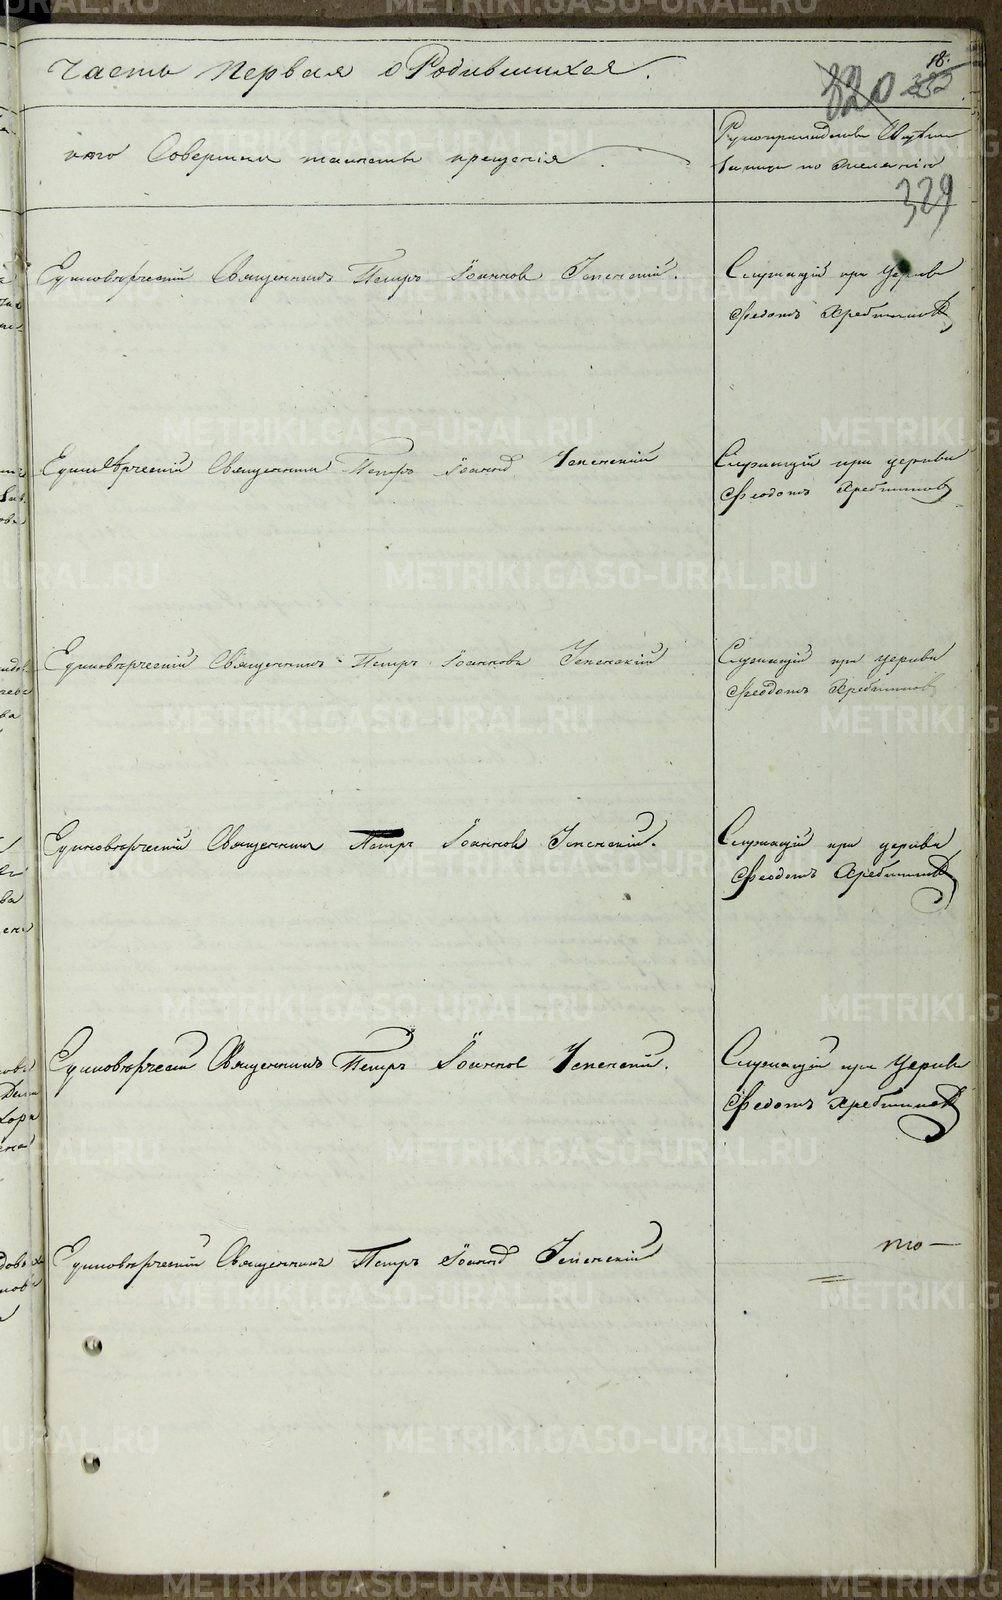 Часть Первая о Родившихся.
18.
320 332
кто Совершал таинство крещенія
Рукоприкладство Свидѣ
телей по желанію
329
Единовѣрческій Священникъ Петръ Іоанновъ Успенскій.
Служащій при Церкви
Федотъ Хребтиковъ
Единовѣрческій Священникъ Петръ Іоаннов Успенскій
Служащій при церкви
Феодотъ Хребтиковъ
Единовѣрческій Священникъ Петръ Іоанновъ Успенскій
Служащій при церкви
Феодотъ Хребтиковъ
Единовѣрческій Священникъ Петръ Іоанновъ Успенскій.
Служащій при церкви
Феодотъ Хребтиковъ
Единовѣрческій Священникъ Петръ Іоаннов Успенскій.
Служащій при Церкви
Федотъ Хребтиковъ
Единовѣрческій Священникъ Петръ Іоаннов Успенскій
METRIKI.GASO-URAL.RU